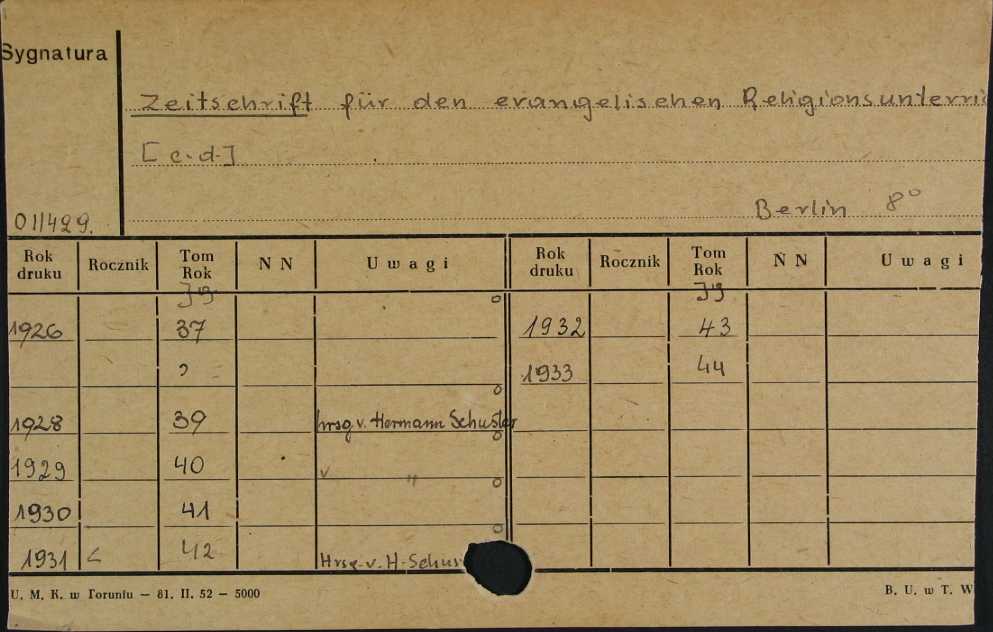 Sygnatura
Zeitschrift für den evangelischen Religionsunterri
[c.d.]
Berlin 8°
011429.
Rok druku Rocznik Tom Rok N N Uwagi Rok druku Rocznik Tom Rok N N Uwagi
Jg Jg
1926 37 1932 43
1933 44
1928 39 hrsg. v. Hermann Schuster
1929 40 v "
1930 41
1931 42 Hrsg. v. H. Schus
U. M. K. w Toruniu — 81. II. 52 — 5000 B. U. w T. W